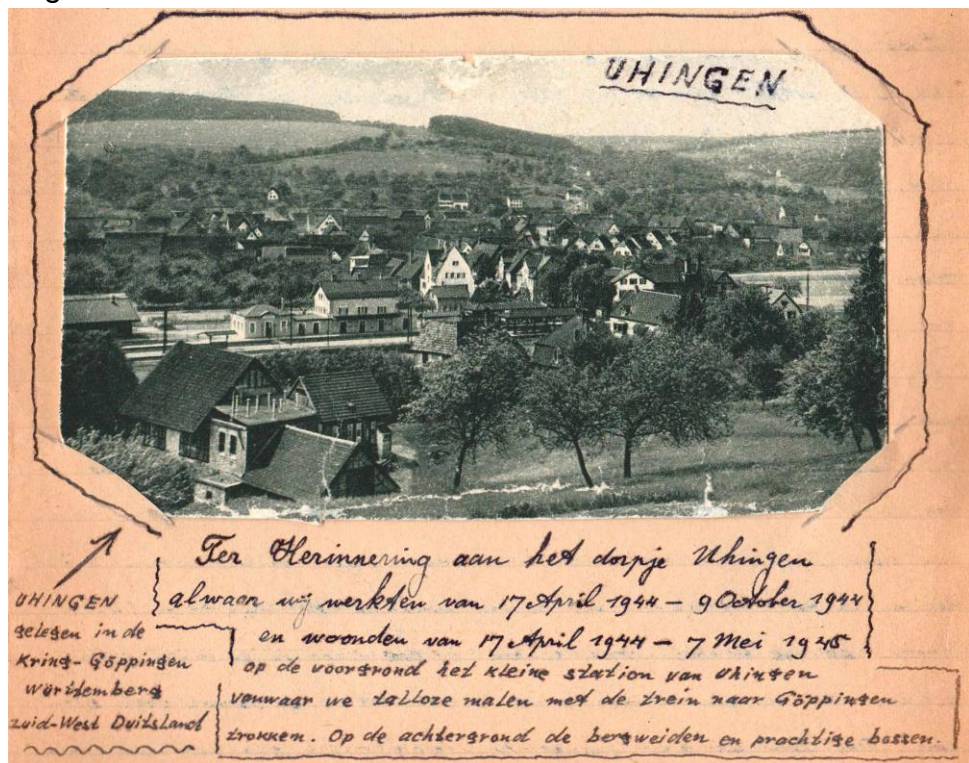 UHINGEN
Ter Herinnering aan het dorpje Uhingen
alwaar wij werkten van 17 April 1944 - 9 October 1944
en woonden van 17 April 1944 - 7 Mei 1945
op de voorgrond het kleine station van Uhingen
venwaar we talloze malen met de trein naar Göppingen
trokken. Op de achtergrond de bergweiden en prachtige bossen.
UHINGEN
gelegen in de
Kring-Göppingen
Würtemberg
zuid-West Duitsland